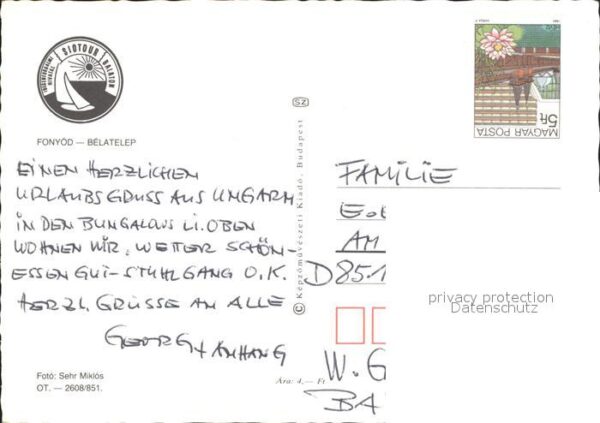 IDEGENFORGALMI HIVATAL SIOTOUR BALATON
FONYÓD — BÉLATELEP
EINEN HERZLICHEN
URLAUBSGRUSS AUS UNGARN
IN DEN BUNGALOWS LI. OBEN
WOHNEN WIR. WETTER SCHÖN-
ESSEN GUT-STUHLGANG O.K.
HERZL. GRÜSSE AN ALLE
GEORG + ANHANG
Fotó: Sehr Miklós
OT. — 2608/851.
Ára: 4,— Ft
SZ
© Képzőművészeti Kiadó, Budapest
5Ft
MAGYAR POSTA
FAMILIE
AM
D 85
W. G
BA
privacy protection
Datenschutz